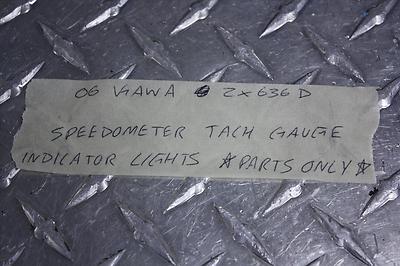 06 KAWA ZX636D
SPEEDOMETER TACH GAUGE
INDICATOR LIGHTS ☆PARTS ONLY☆